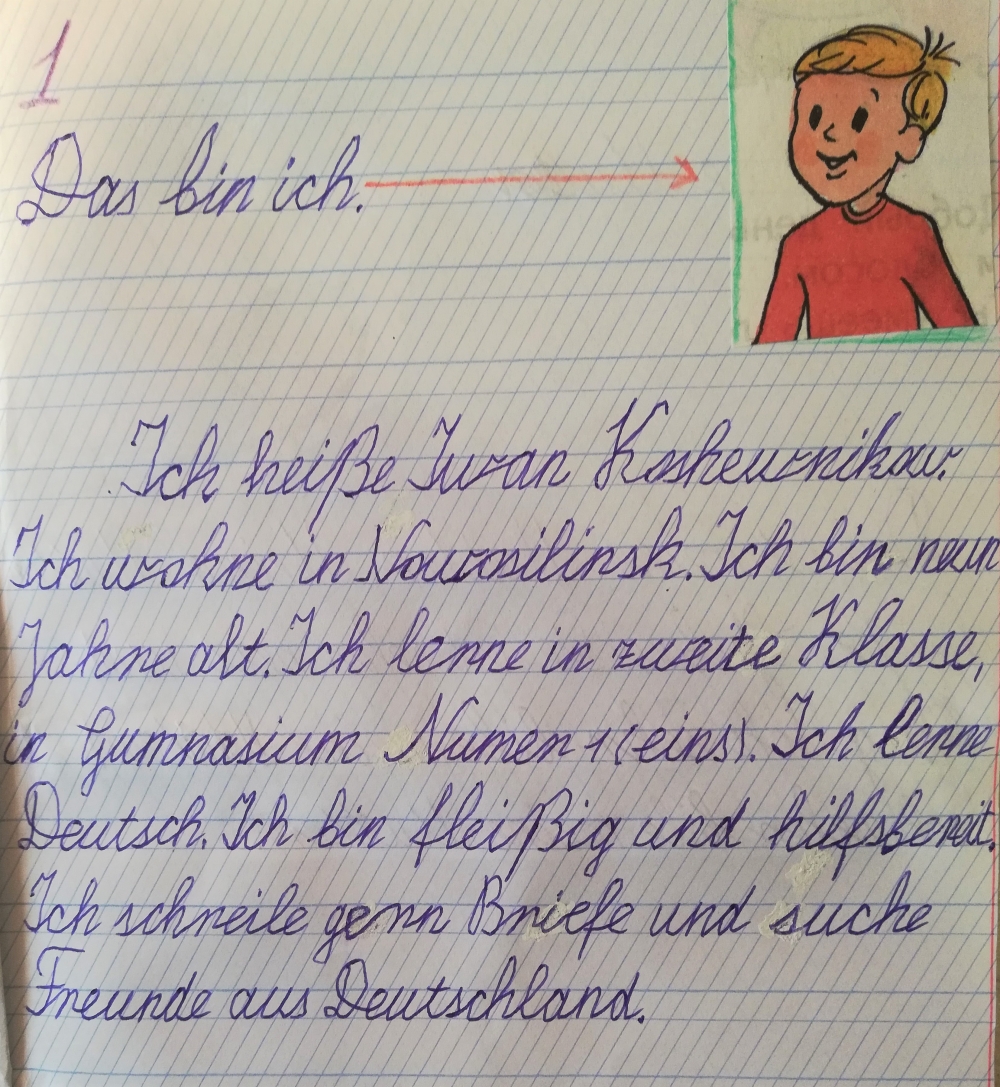 1
Das bin ich.
Ich heiße Iwan Koshewnikow.
Ich wohne in Nowosibinsk. Ich bin neun
Jahre alt. Ich lerne in zweite Klasse,
in Gymnasium Numer 1 (eins). Ich lerne
Deutsch. Ich bin fleißig und hilfsbereit.
Ich schreibe gern Briefe und suche
Freunde aus Deutschland.